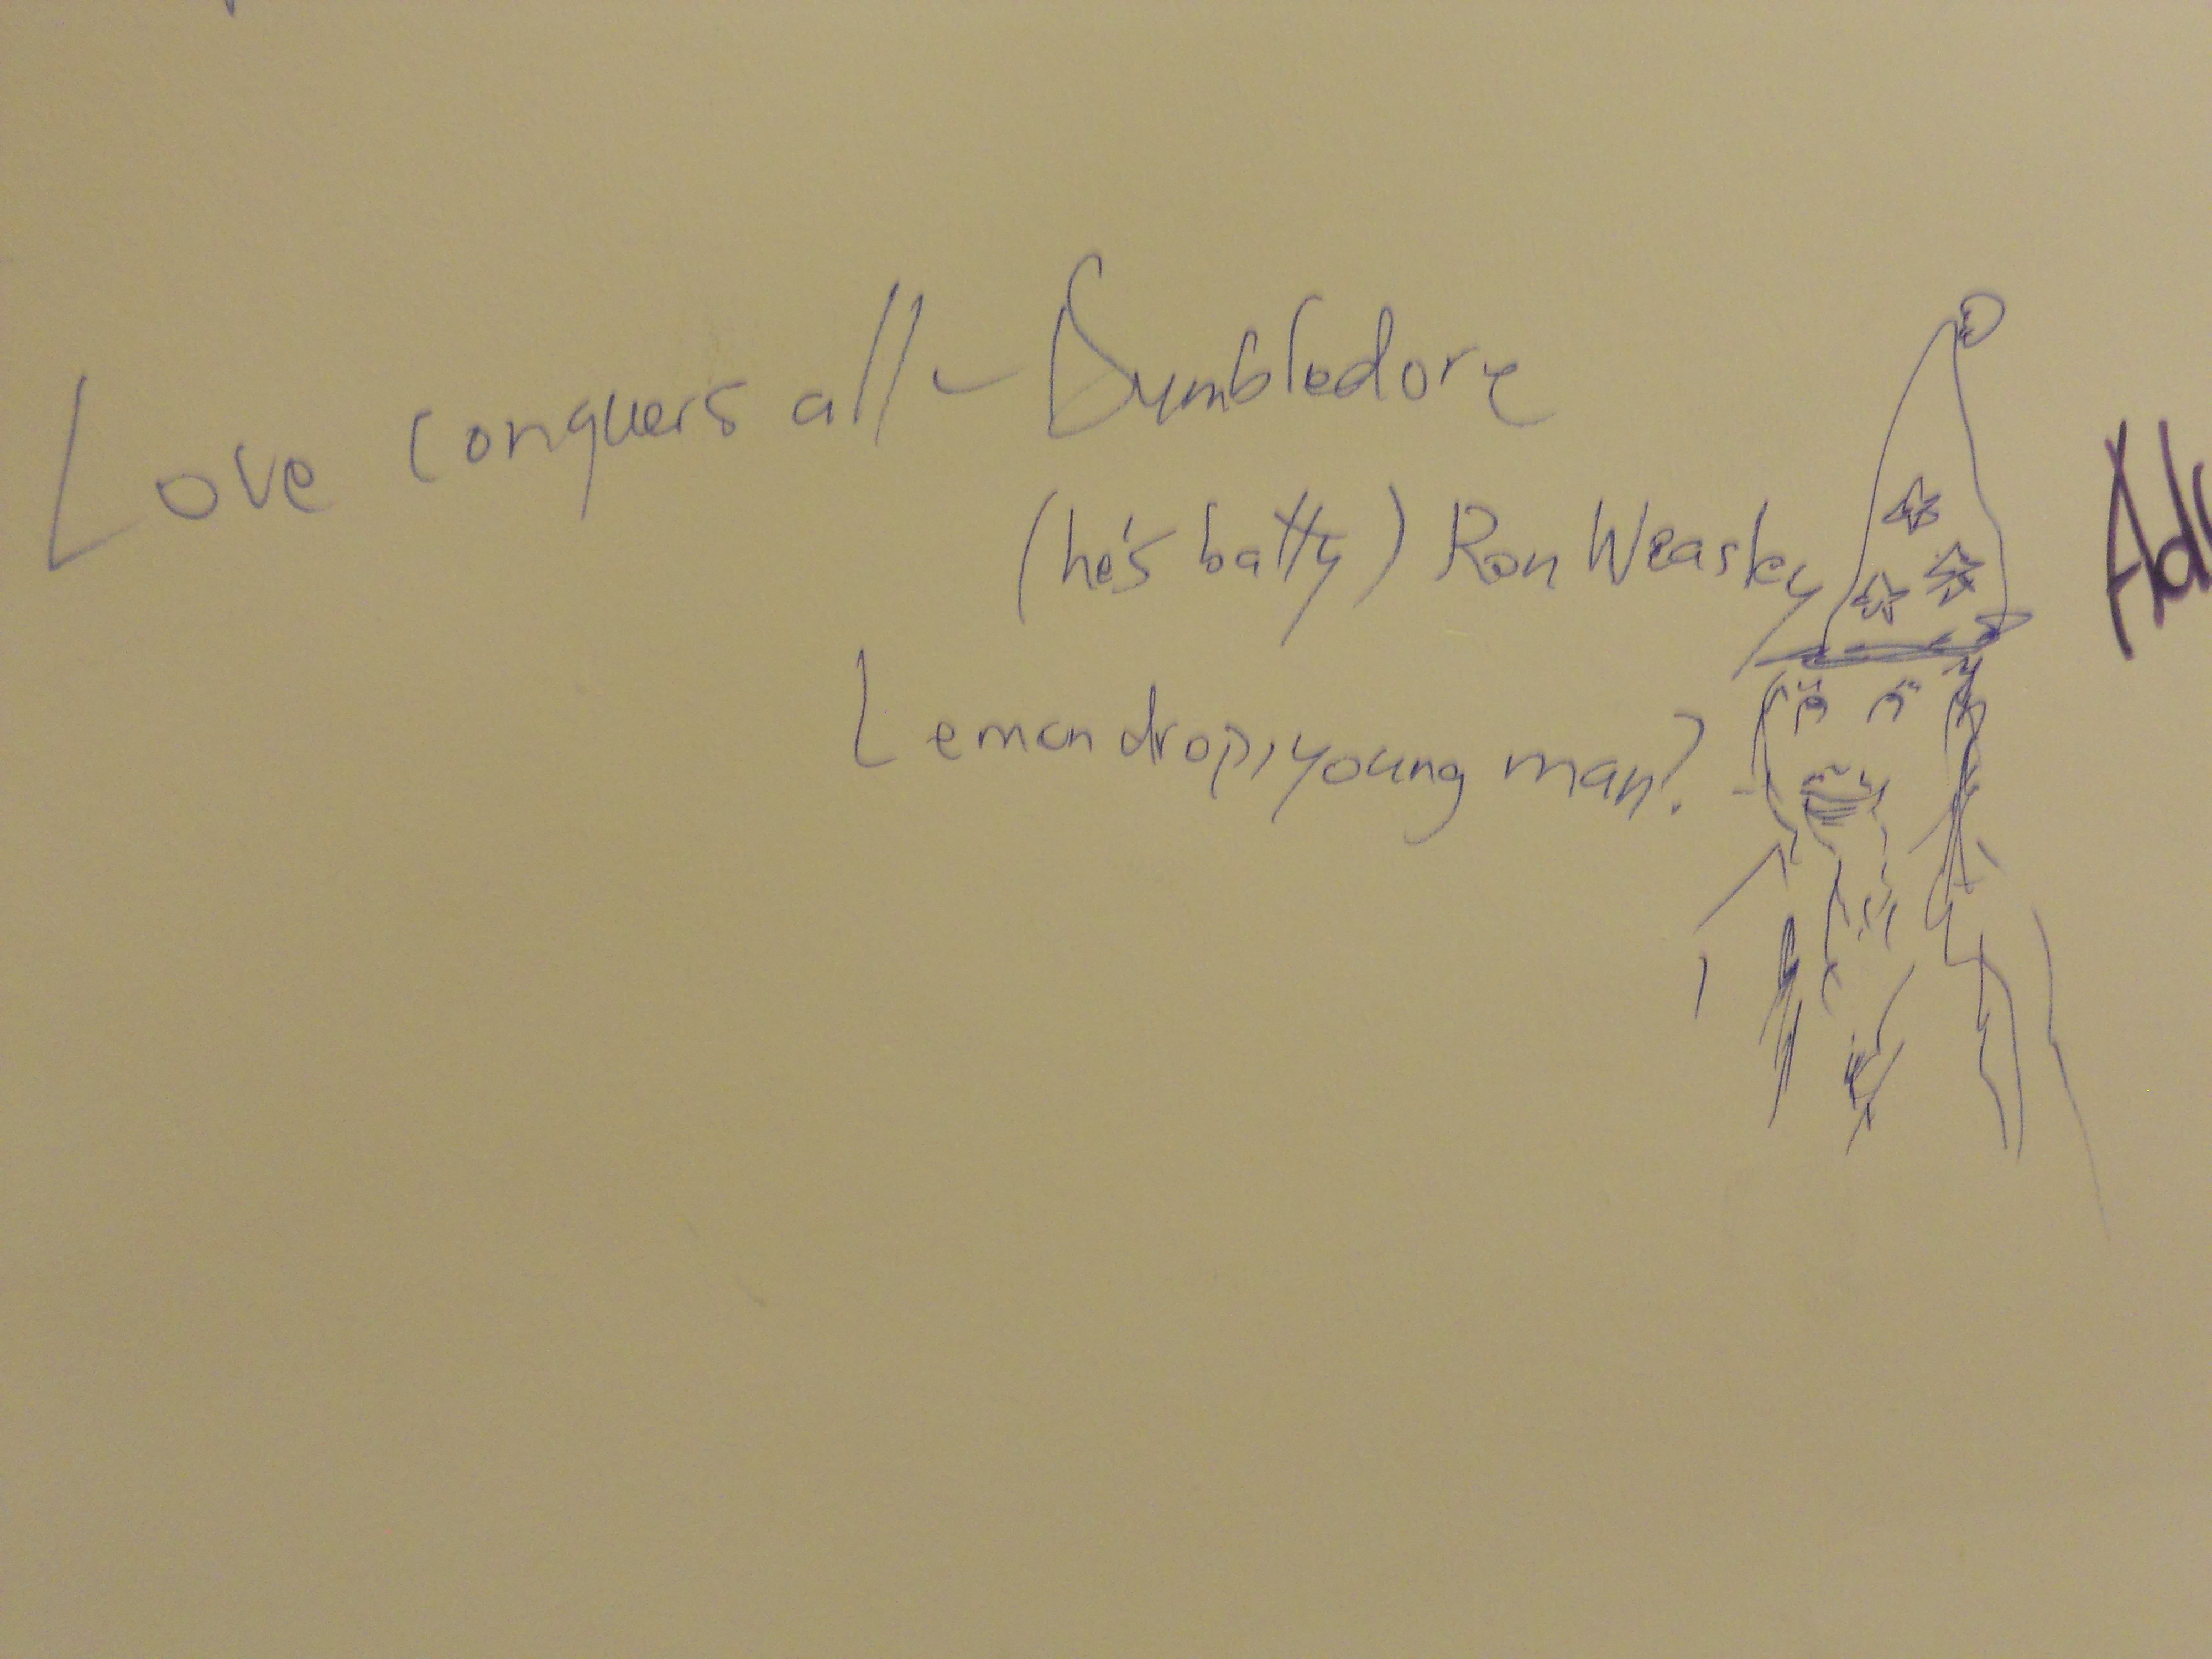 Love conquers all - Dumbledore
(he's batty) Ron Weasley
Lemon drop, young man?